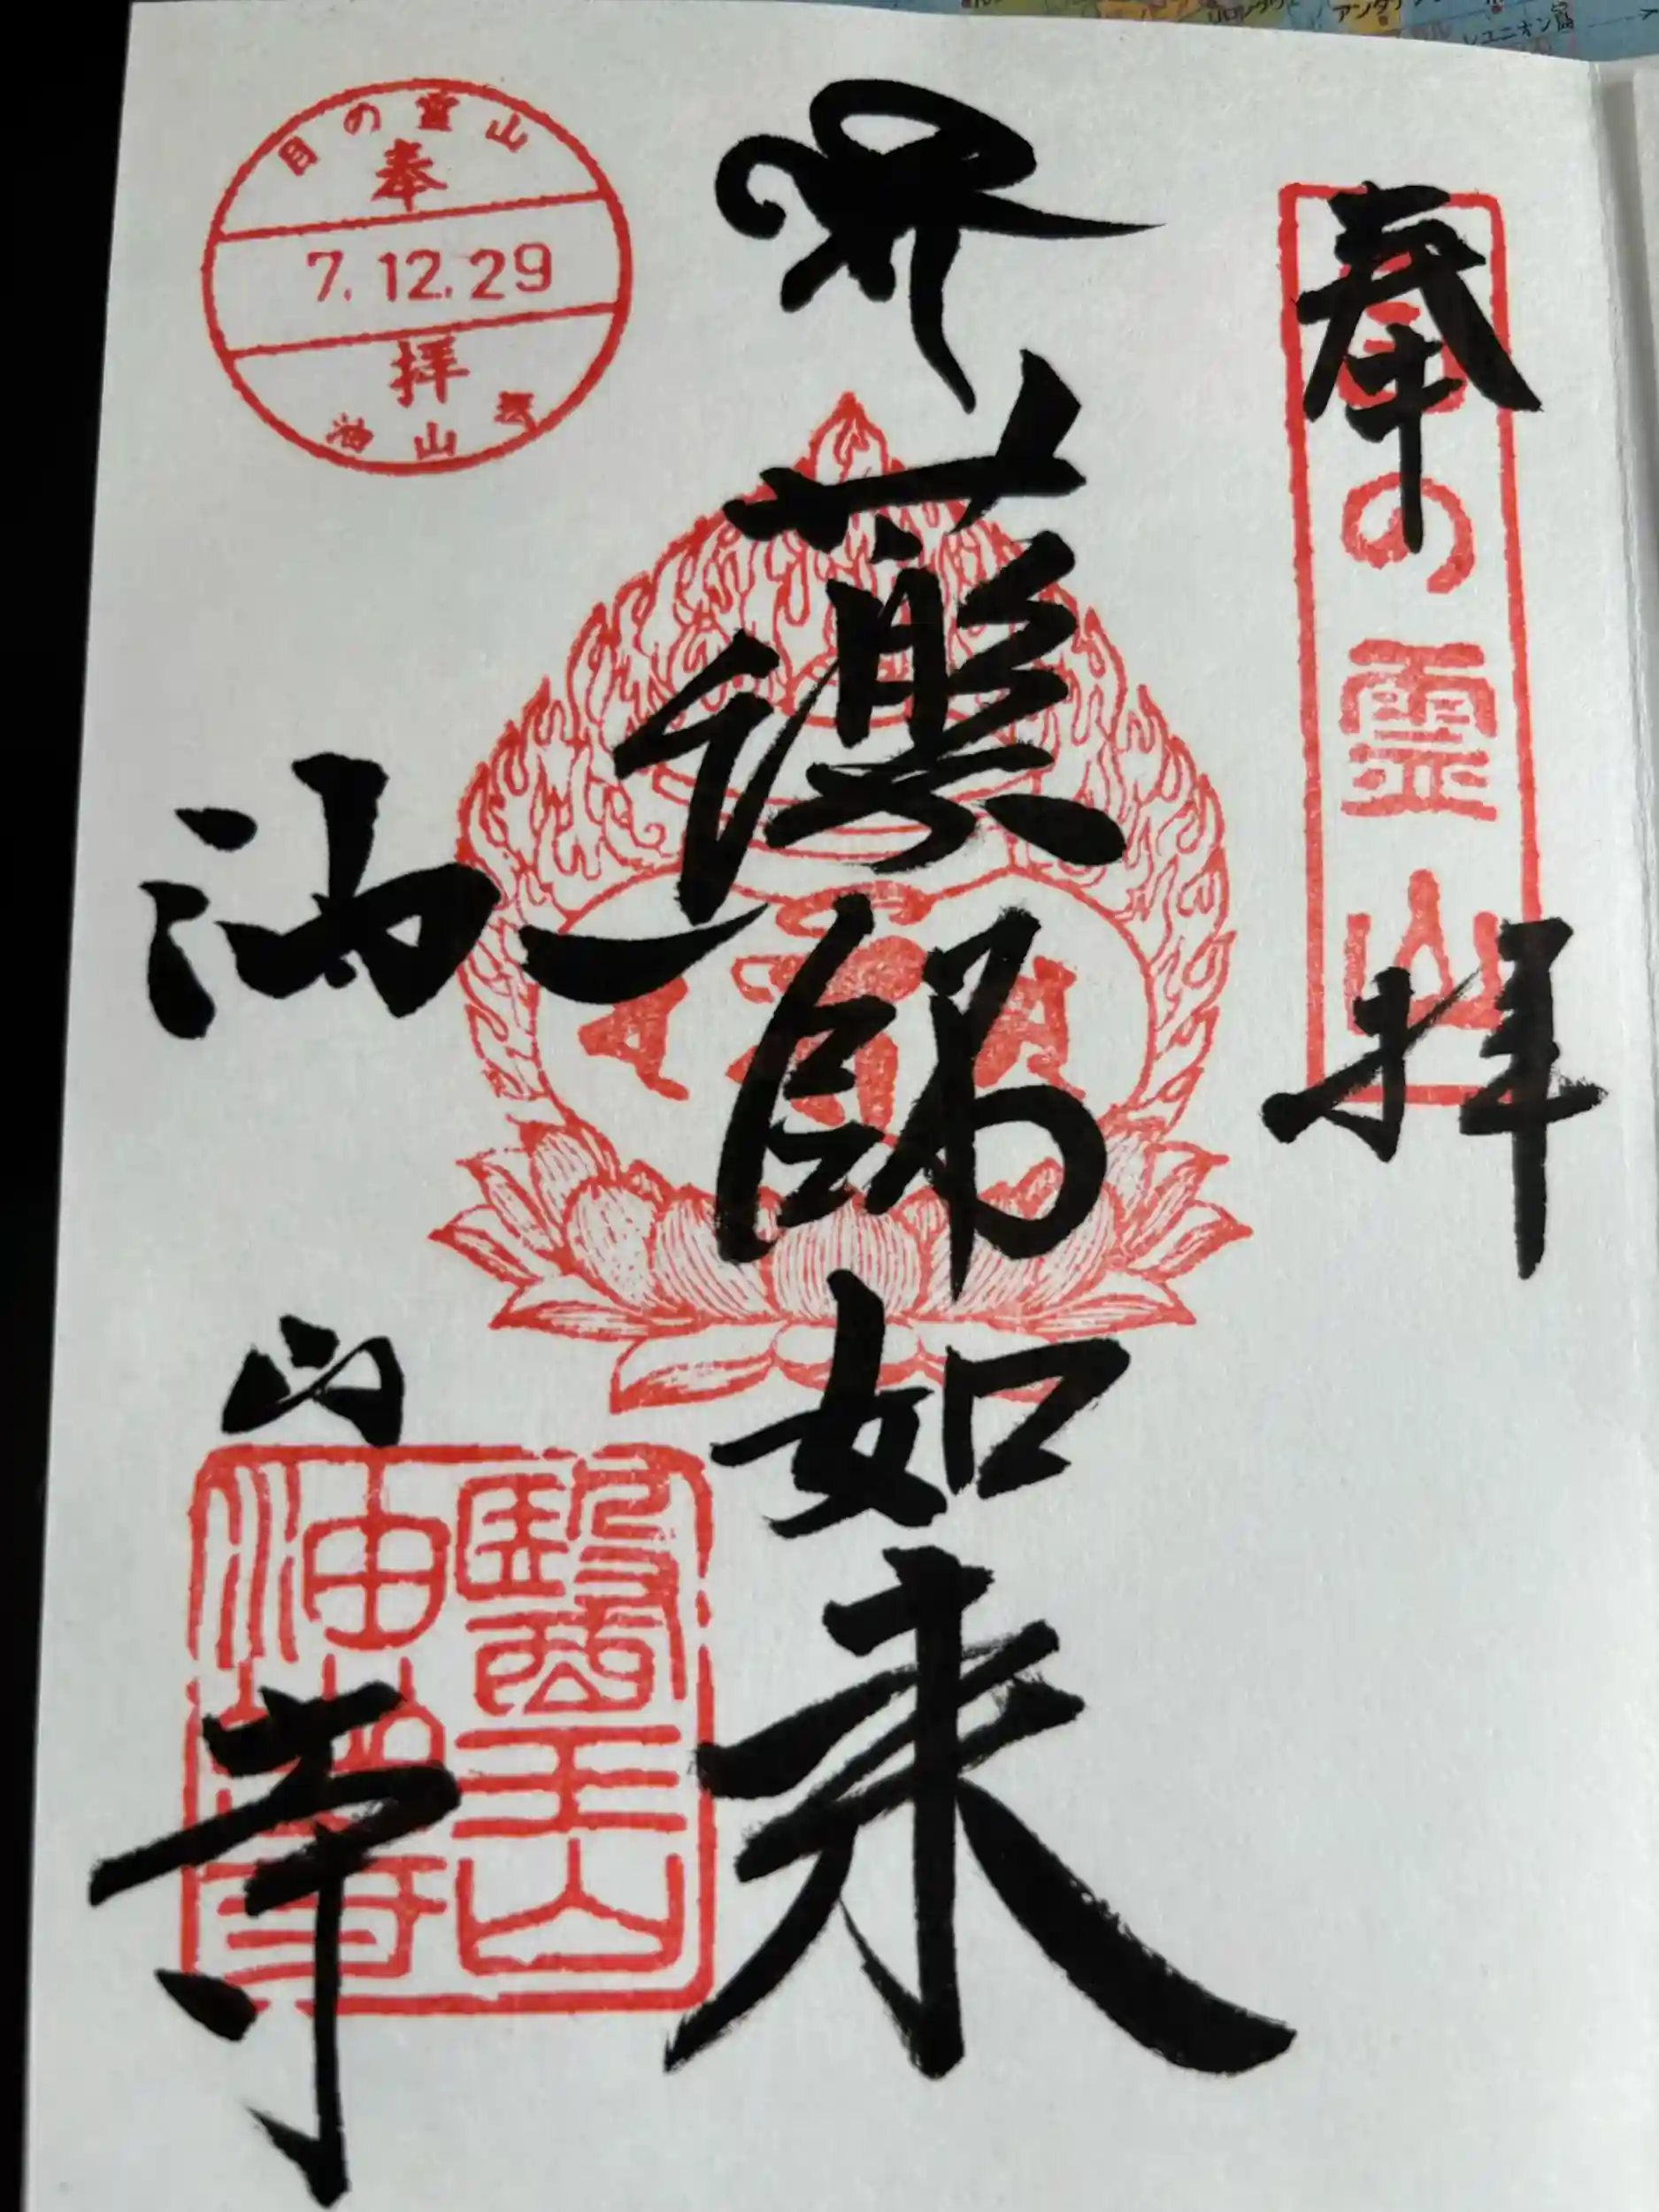 レユニオン島
奉拝
目の霊山
薬師如来
油山寺
目の霊山
奉
7.12.29
拝
油山寺
醫王山
油山寺